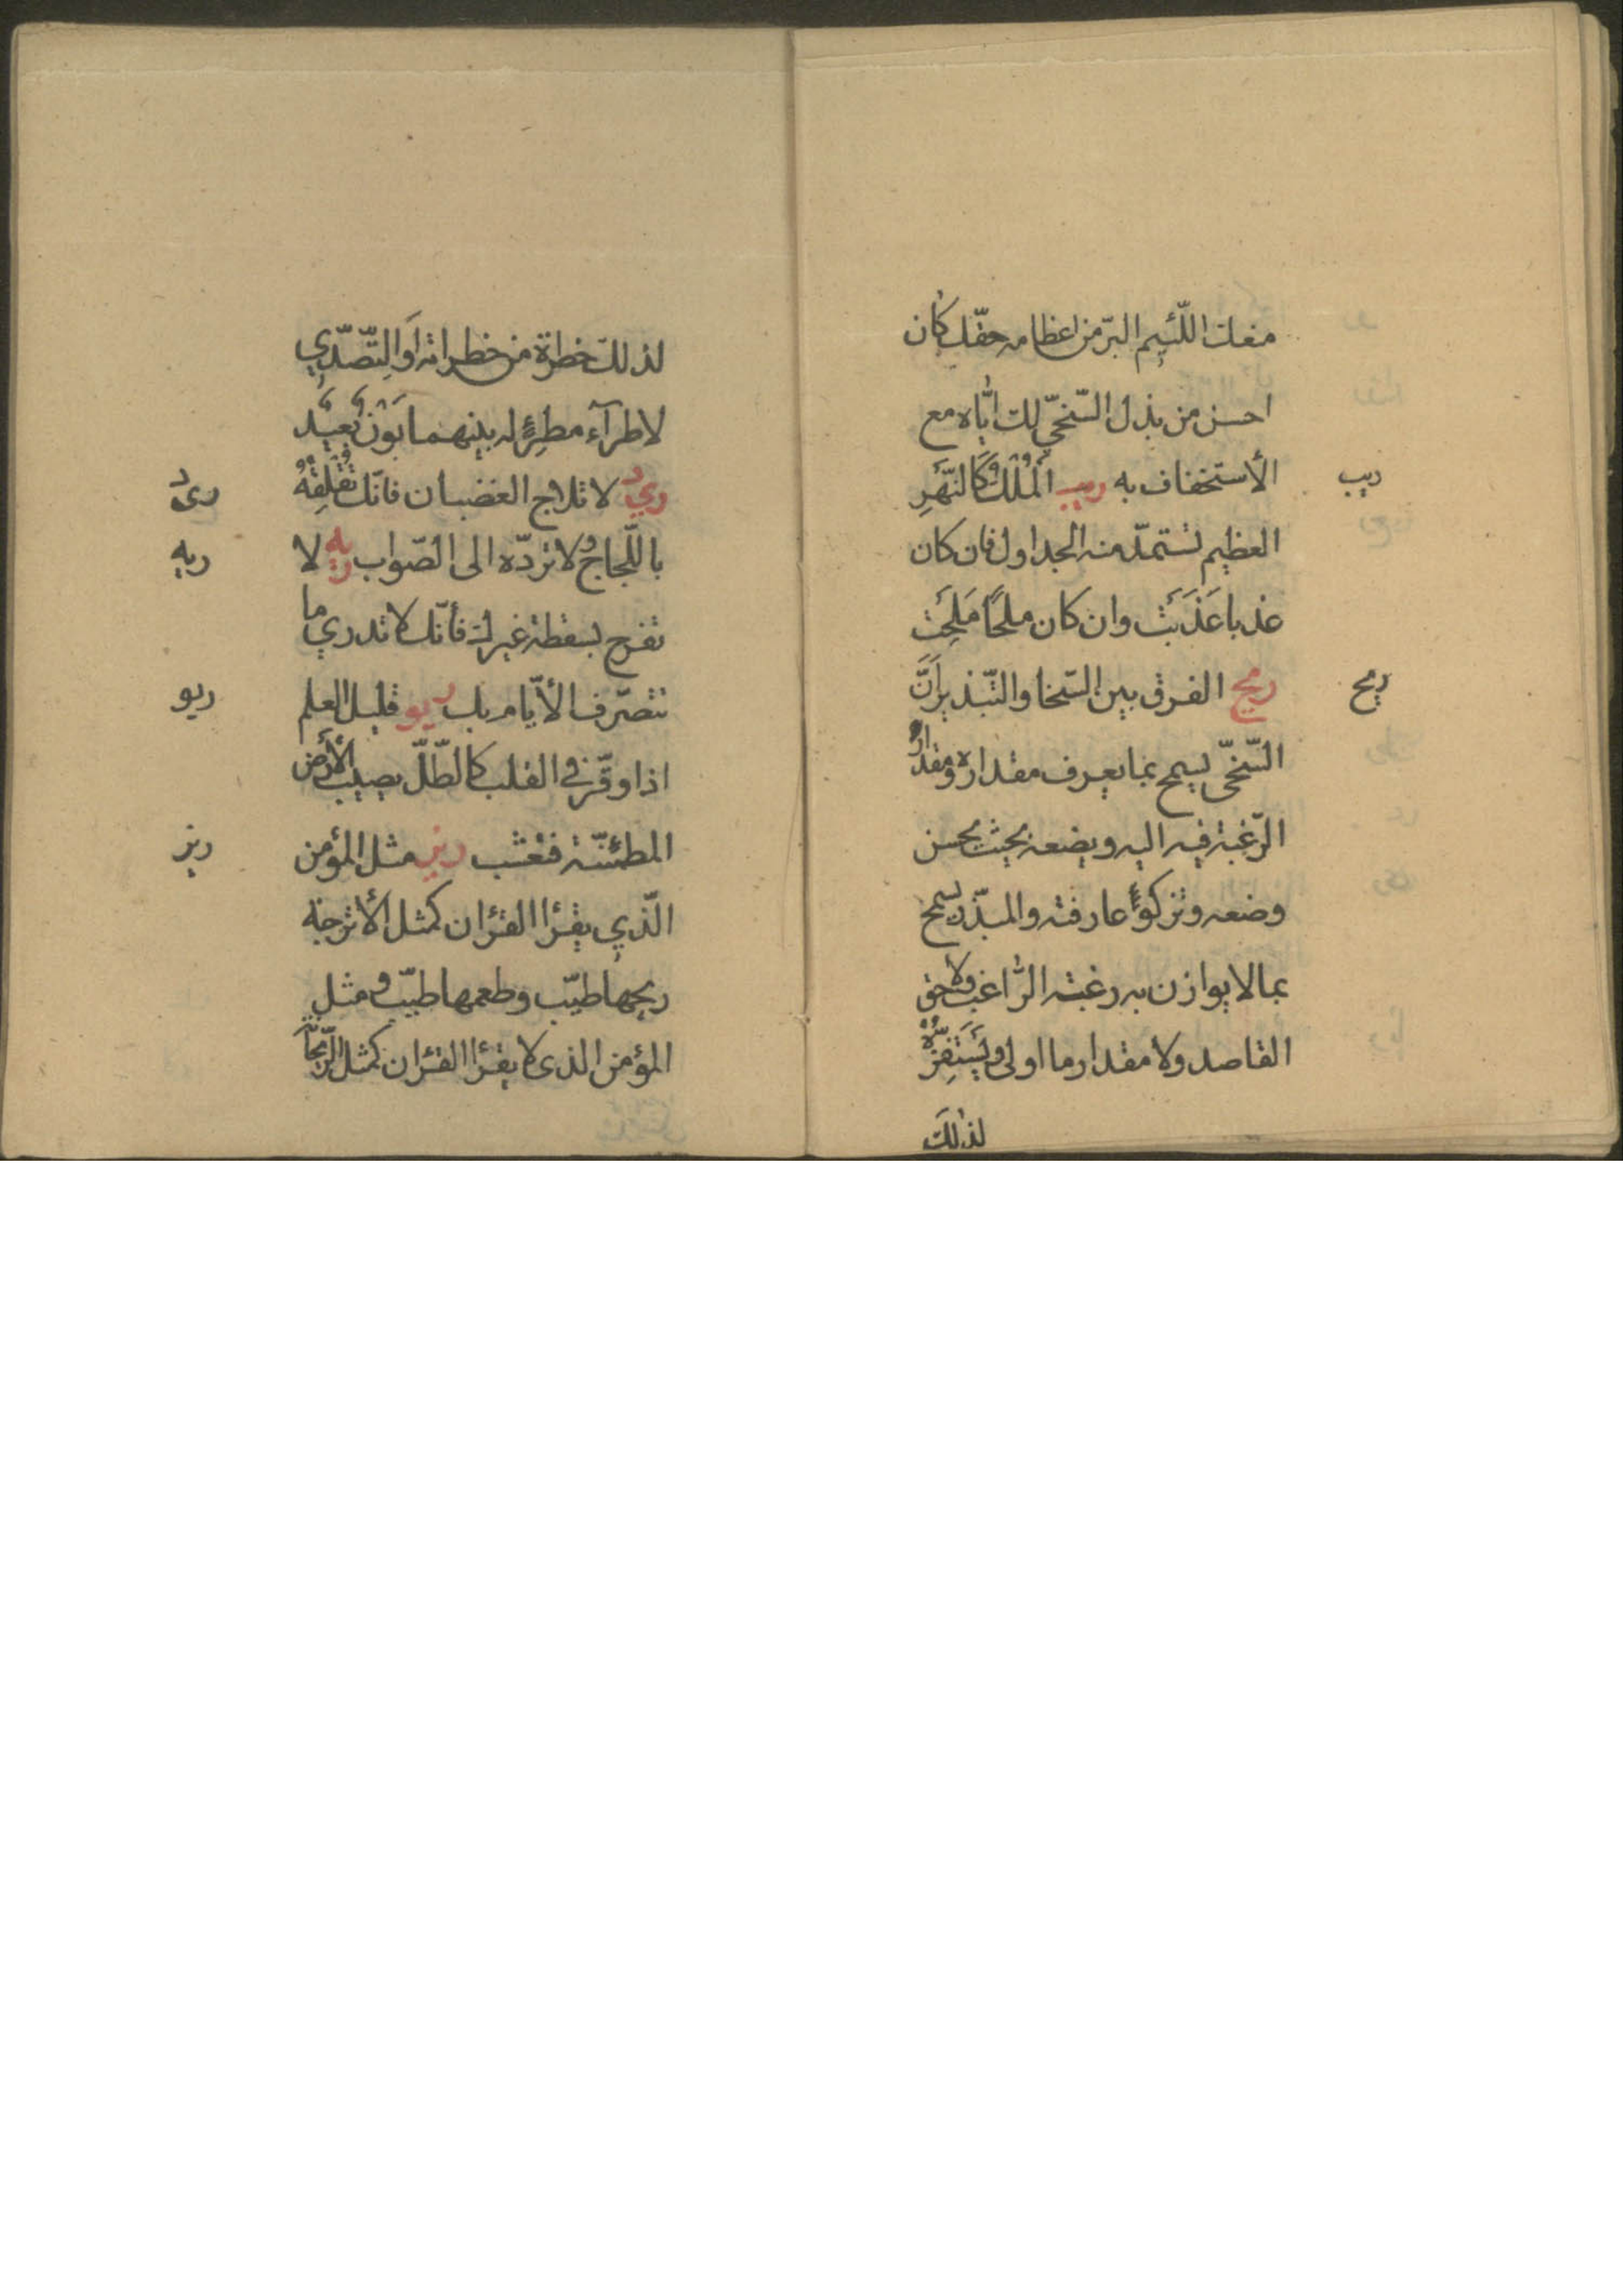 منعك اللّئيم البرّ من اعظامه حقّك كان
احسن من بذل السّخيّ لك ايّاه مع
ريب
الأستخفاف به ريب المُلْك كَالنّهَرِ
العظيم تستمدّ منه الجداول فان كان
عذبا عَذَبَتْ وان كان ملحًا مَلَحِتْ
ريج
ريج الفرق بين السّخا والتّبذير اَنَّ
السّخّى يسمح بما يعرف مقداره ومقدار
الرّغبة فيه اليه ويضعه بحيث يحسن
وضعه وتزكوا عارفته والمبذّر يسمح
بما لا يوازن به رغبته الرّاغب ولا حق
القاصد ولا مقدار ما اولى ويَسْتَفِزُّهُ
لذلك
لذلك خطرة من خطراته اَوَالتّصّدّي
لاطرآء مطرِئٍ له بينهما بَوْنٌ بَعيدٌ
ريد
ريد لا تلاج الغضبان فانّك تُقْلِقُهُ
ريه
باللّجاج ولا تردّه الى الصّواب ريه لا
تفرح بسقطة غيرك فأنّك لا تدري ما
ريو
تتصّرف الأيّام بك ريو قليل العلم
اذا وقّر في القلب كالطّلّ يصيب الأرض
ريز
المطمئنّة فتعشب ريز مثل المؤمن
الّذي يقرأ القرْان كمثل الأترجة
ريحها طيّب وطعمها طيّب ومثل
المؤمن الذى لا يقرأ القرْان كمثل الرّيحان